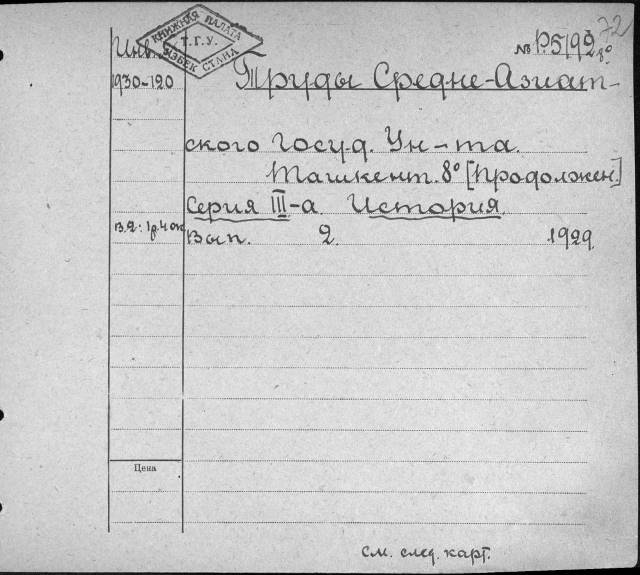 КНИЖНАЯ ПАЛАТА
Т.Г.У.
УЗБЕКСТАНА
Инв.
№ Р5/92
72
8º
1930-120
Труды Средне-Азиат-
ского Госуд. Ун-та.
Ташкент. 8º [Продолжен.]
Серия III-а. История.
В.2: 1р.40к
Вып. 2. 1929.
Цена
См. след. карт.